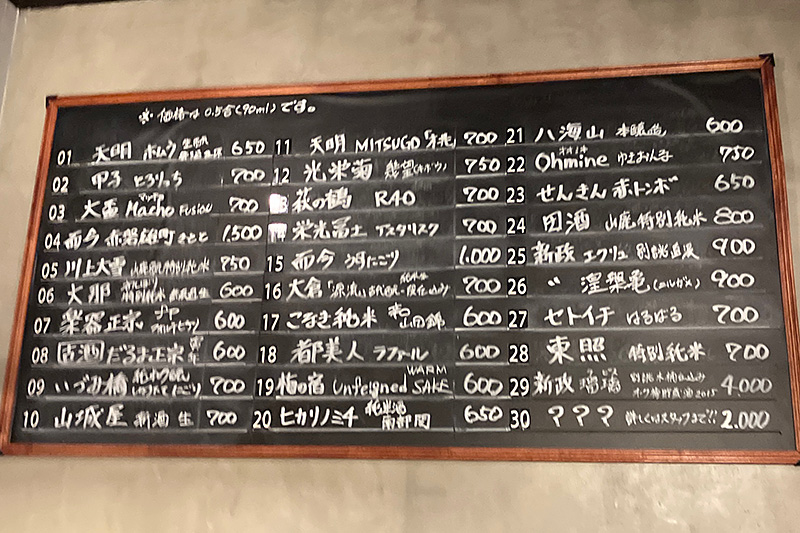 ※価格は0.5合(90ml)です。
01 天明 ホムラ 650
02 甲子 とろりっち 700
03 大盃 Macho Fusion 700
04 而今 赤磐雄町 1,500
05 川上大雪 山廃特別純米 750
06 大那 特別純米 600
07 楽器正宗 600
08 だるま正宗 600
09 いづみ橋 700
10 山城屋 新酒 生 700
11 天明 MITSUGO 700
12 光栄菊 幾望(キボウ) 750
13 萩の鶴 R40 700
14 栄光冨士 アスタリスク 700
15 而今 にごり 1,000
16 大倉 700
17 こなき純米 山田錦 600
18 都美人 ラファール 600
19 梅の宿 Unfeigned WARM SAKE 600
20 ヒカリノミチ 純米酒 南部 650
21 八海山 本醸造 600
22 Ohmine ゆきおんな 750
23 せんきん 赤トンボ 650
24 田酒 山廃特別純米 800
25 新政 エクリュ 900
26 〃 涅槃亀(ニルガメ) 900
27 セトイチ はるばる 700
28 東照 特別純米 700
29 新政 瑠璃 2015 4,000
30 ??? 詳しくはスタッフまで!! 2,000